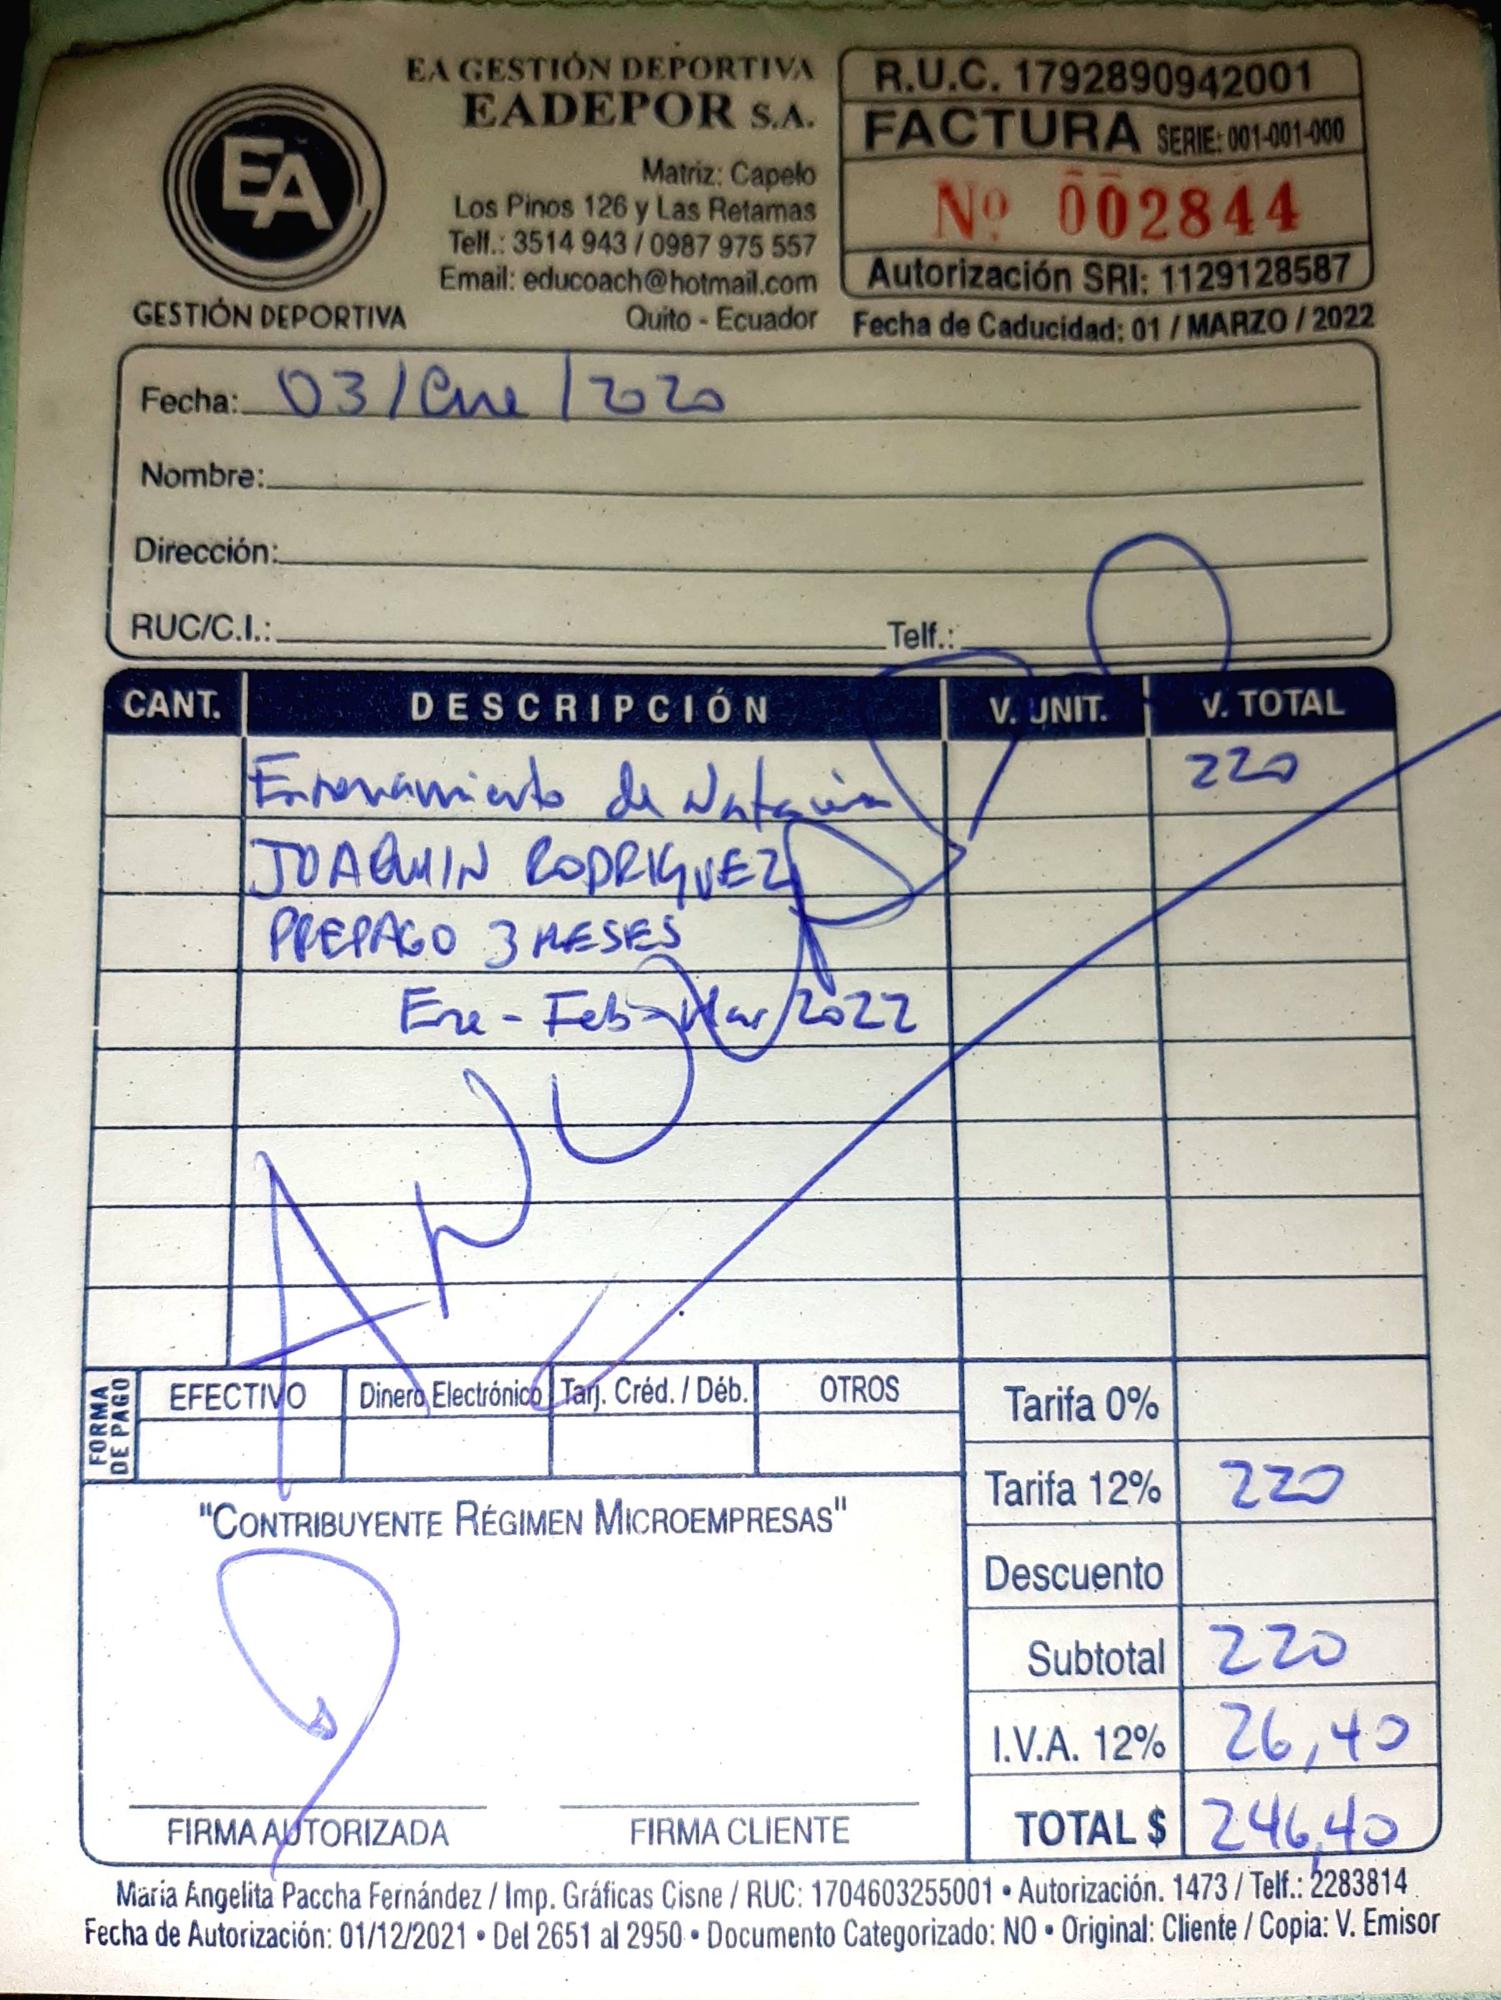 EA GESTIÓN DEPORTIVA
EADEPOR S.A.
Matriz: Capelo
Los Pinos 126 y Las Retamas
Telf.: 3514 943 / 0987 975 557
Email: educoach@hotmail.com
Quito - Ecuador
EA
GESTIÓN DEPORTIVA
R.U.C. 1792890942001
FACTURA SERIE: 001-001-000
Nº 002844
Autorización SRI: 1129128587
Fecha de Caducidad: 01 / MARZO / 2022
Fecha: 03/Ene/2020
Nombre:
Dirección:
RUC/C.I.: Telf.:
CANT. DESCRIPCIÓN V. UNIT. V. TOTAL
Entrenamiento de Natación 220
JOAQUIN RODRIGUEZ
PREPAGO 3 MESES
Ene - Feb - Mar/2022
ANULADO
FORMA DE PAGO
EFECTIVO Dinero Electrónico Tarj. Créd. / Déb. OTROS
Tarifa 0%
Tarifa 12% 220
"CONTRIBUYENTE RÉGIMEN MICROEMPRESAS"
Descuento
Subtotal 220
I.V.A. 12% 26,40
TOTAL $ 246,40
FIRMA AUTORIZADA FIRMA CLIENTE
María Angelita Paccha Fernández / Imp. Gráficas Cisne / RUC: 1704603255001 • Autorización. 1473 / Telf.: 2283814
Fecha de Autorización: 01/12/2021 • Del 2651 al 2950 • Documento Categorizado: NO • Original: Cliente / Copia: V. Emisor